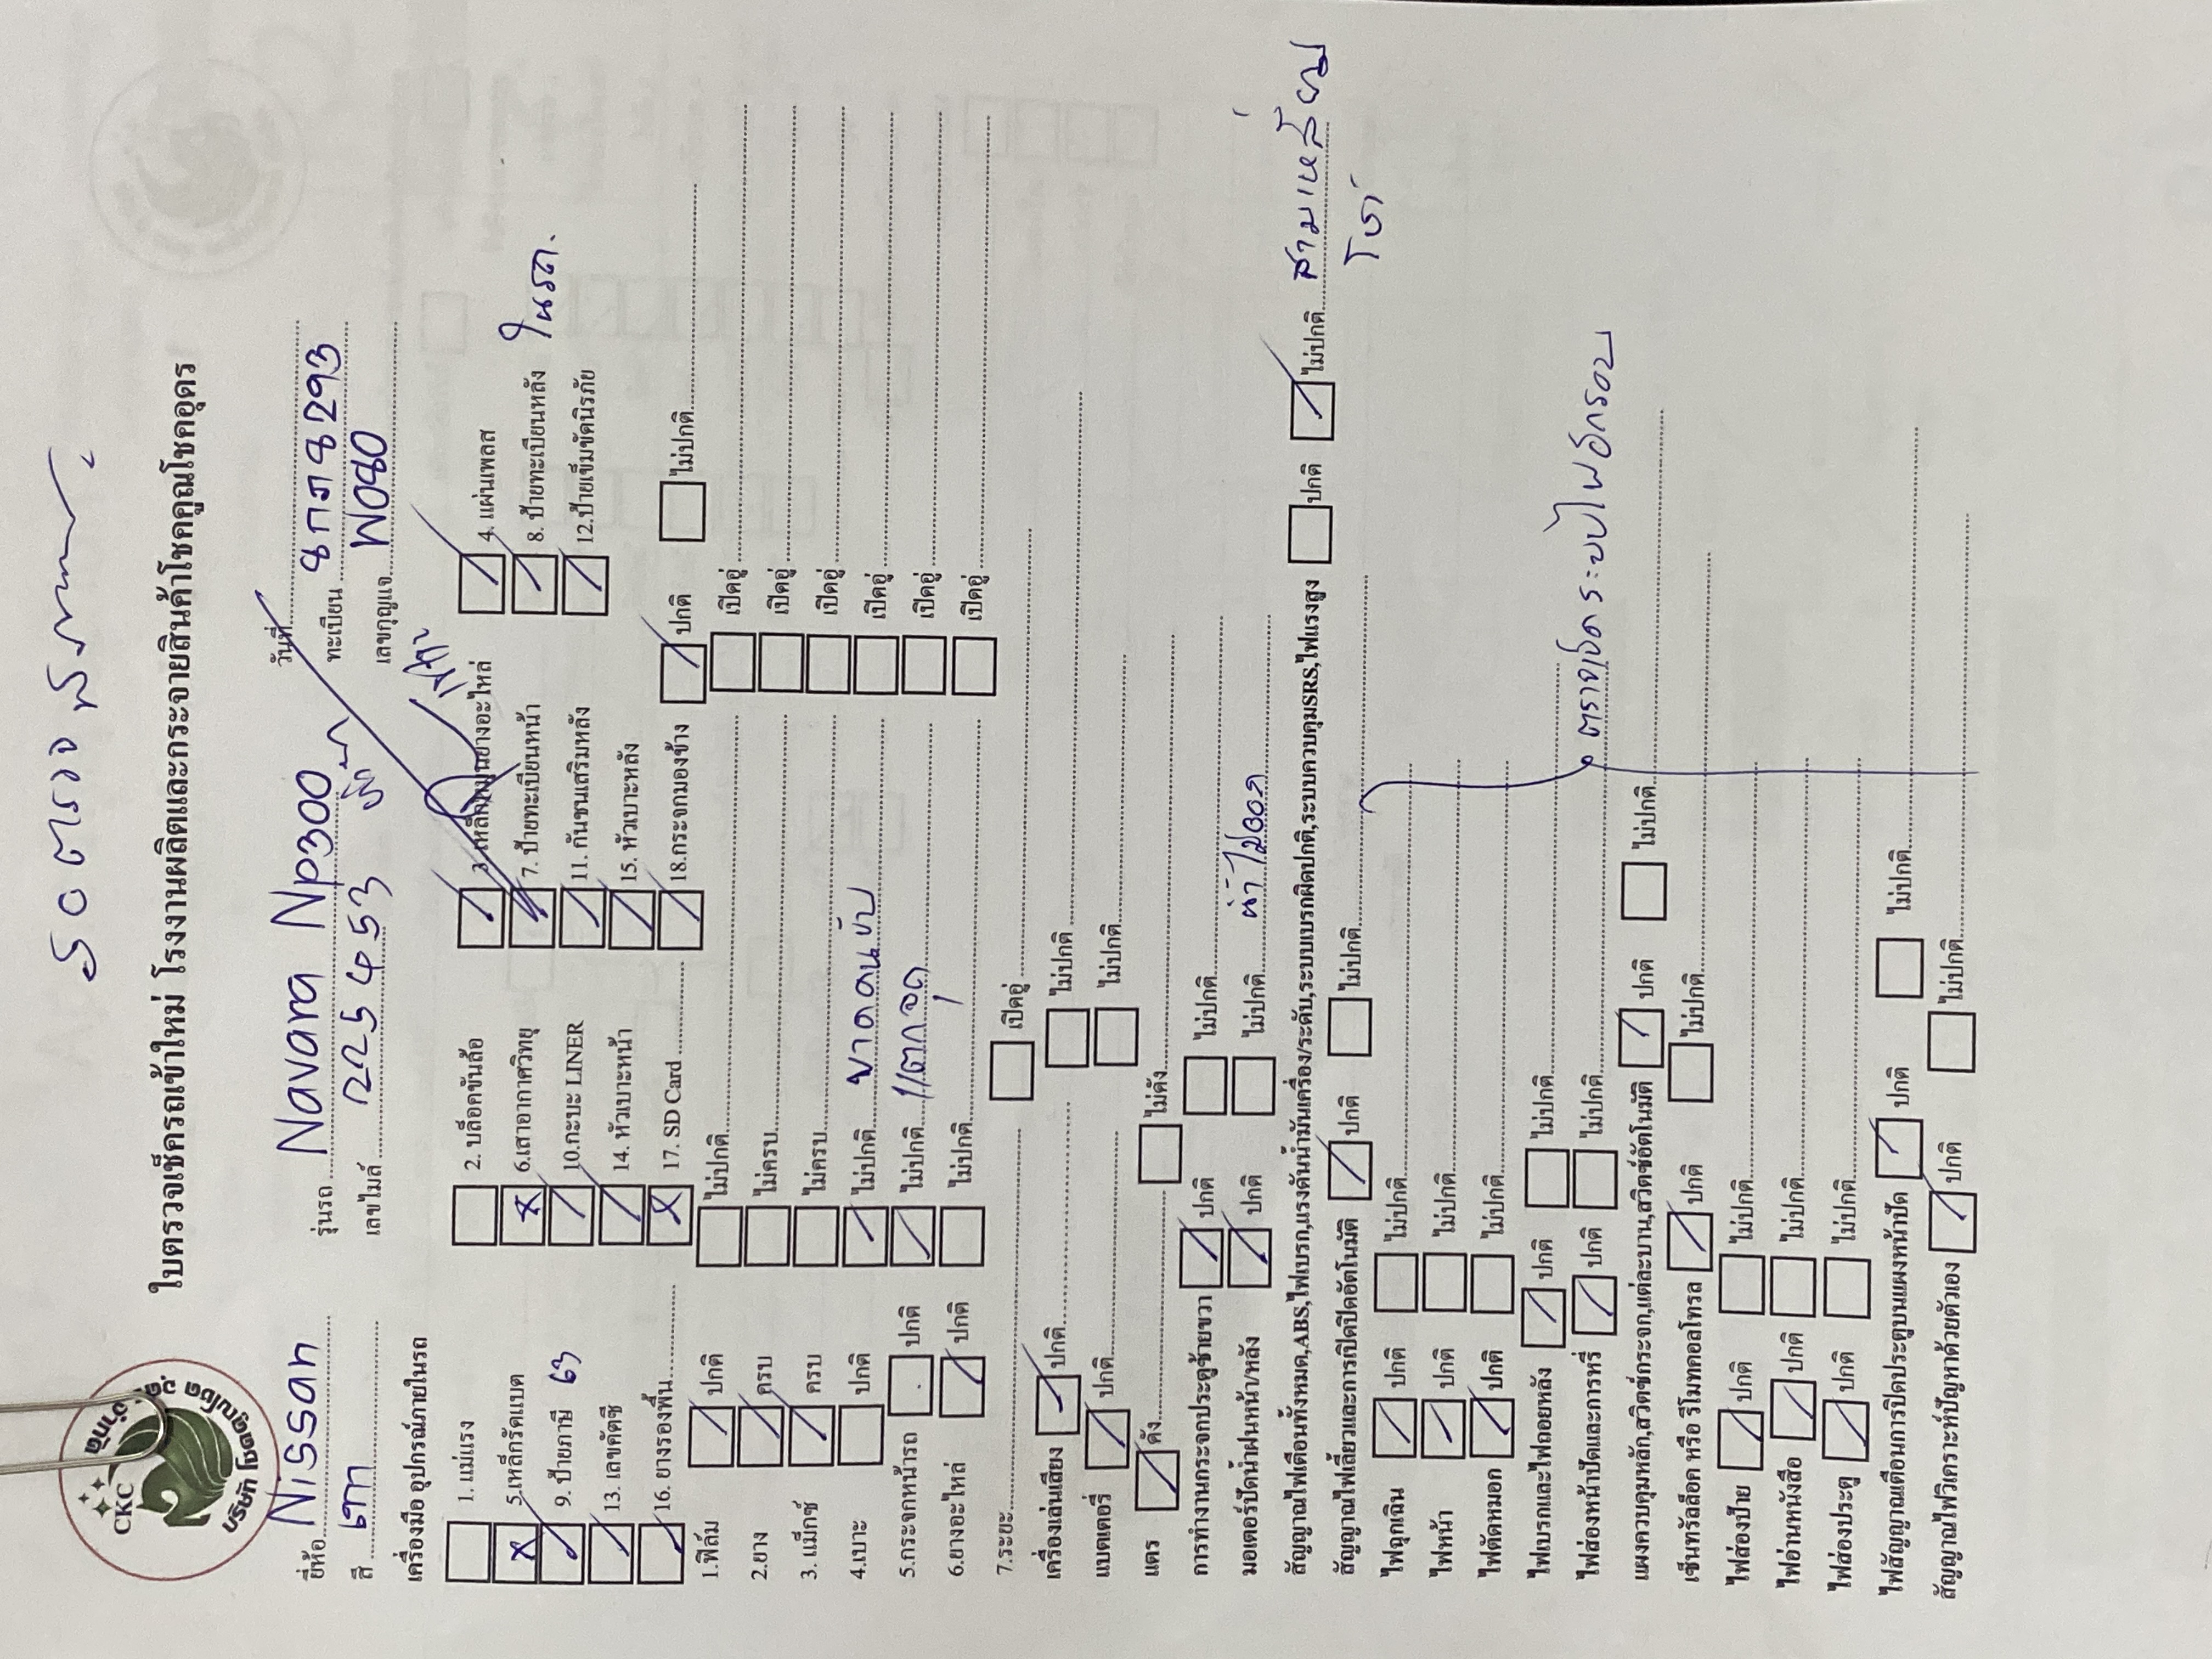 รอตรวจ
CKC
ใบตรวจเช็ครถเข้าใหม่ โรงงานผลิตและกระจายสินค้าโชคคูณโชคอุดร
ยี่ห้อ Nissan รุ่นรถ Navara Np300 วันที่
สี เทา เลขไมล์ 225453 ทะเบียน
เลขกุญแจ W080
เครื่องมือ อุปกรณ์ภายในรถ
1. แม่แรง 2. บล็อคขันล้อ 4. แผ่นเพลส
5.เหล็กรัดแบต 6.เสาอากาศวิทยุ 7. ป้ายทะเบียนหน้า 8. ป้ายทะเบียนหลัง ในรถ.
9. ป้ายภาษี 63 10.กะบะ LINER 11. กันชนเสริมหลัง 12.ป้ายเข็มขัดนิรภัย
13. เลขคัตซี 14. หัวเบาะหน้า 15. หัวเบาะหลัง
16. ยางรองพื้น 17. SD Card 18.กระจกมองข้าง ปกติ ไม่ปกติ
1.ฟิล์ม ปกติ ไม่ปกติ เปิดอู่
2.ยาง ครบ ไม่ครบ เปิดอู่
3. แม็กซ์ ครบ ไม่ครบ เปิดอู่
4.เบาะ ปกติ ไม่ปกติ ขาดคนขับ เปิดอู่
5.กระจกหน้ารถ ปกติ ไม่ปกติ แตก จุด เปิดอู่
6.ยางอะไหล่ ปกติ ไม่ปกติ เปิดอู่
7.ระยะ เปิดอู่
เครื่องเล่นเสียง ปกติ ไม่ปกติ
แบตเตอรี่ ปกติ ไม่ปกติ
แตร ดัง ไม่ดัง
การทำงานกระจกประตูซ้ายขวา ปกติ ไม่ปกติ
มอเตอร์ปัดน้ำฝนหน้า/หลัง ปกติ ไม่ปกติ
สัญญาณไฟเตือนทั้งหมด,ABS,ไฟเบรก,แรงดันน้ำมันเครื่อง/ระดับ,ระบบเบรกผิดปกติ,ระบบควบคุมSRS,ไฟแรงสูง ปกติ ไม่ปกติ สามเหลี่ยม
โชว์
สัญญาณไฟเลี้ยวและการเปิดปิดอัตโนมัติ ปกติ ไม่ปกติ
ไฟฉุกเฉิน ปกติ ไม่ปกติ
ไฟหน้า ปกติ ไม่ปกติ
ไฟตัดหมอก ปกติ ไม่ปกติ
ไฟเบรกและไฟถอยหลัง ปกติ ไม่ปกติ
ไฟส่องหน้าปัดและการหรี่ ปกติ ไม่ปกติ ตรวจเช็คระบบไฟอีกรอบ
แผงควบคุมหลัก,สวิตช์กระจก,แต่ละบาน,สวิตช์อัตโนมัติ ปกติ ไม่ปกติ
เซ็นทรัลล็อค หรือ รีโมทคอลโทรล ปกติ ไม่ปกติ
ไฟส่องป้าย ปกติ ไม่ปกติ
ไฟอ่านหนังสือ ปกติ ไม่ปกติ
ไฟส่องประตู ปกติ ไม่ปกติ
ไฟสัญญาณเตือนการปิดประตูบนแผงหน้าปัด ปกติ ไม่ปกติ
สัญญาณไฟวิเคราะห์ปัญหาด้วยตัวเอง ปกติ ไม่ปกติ